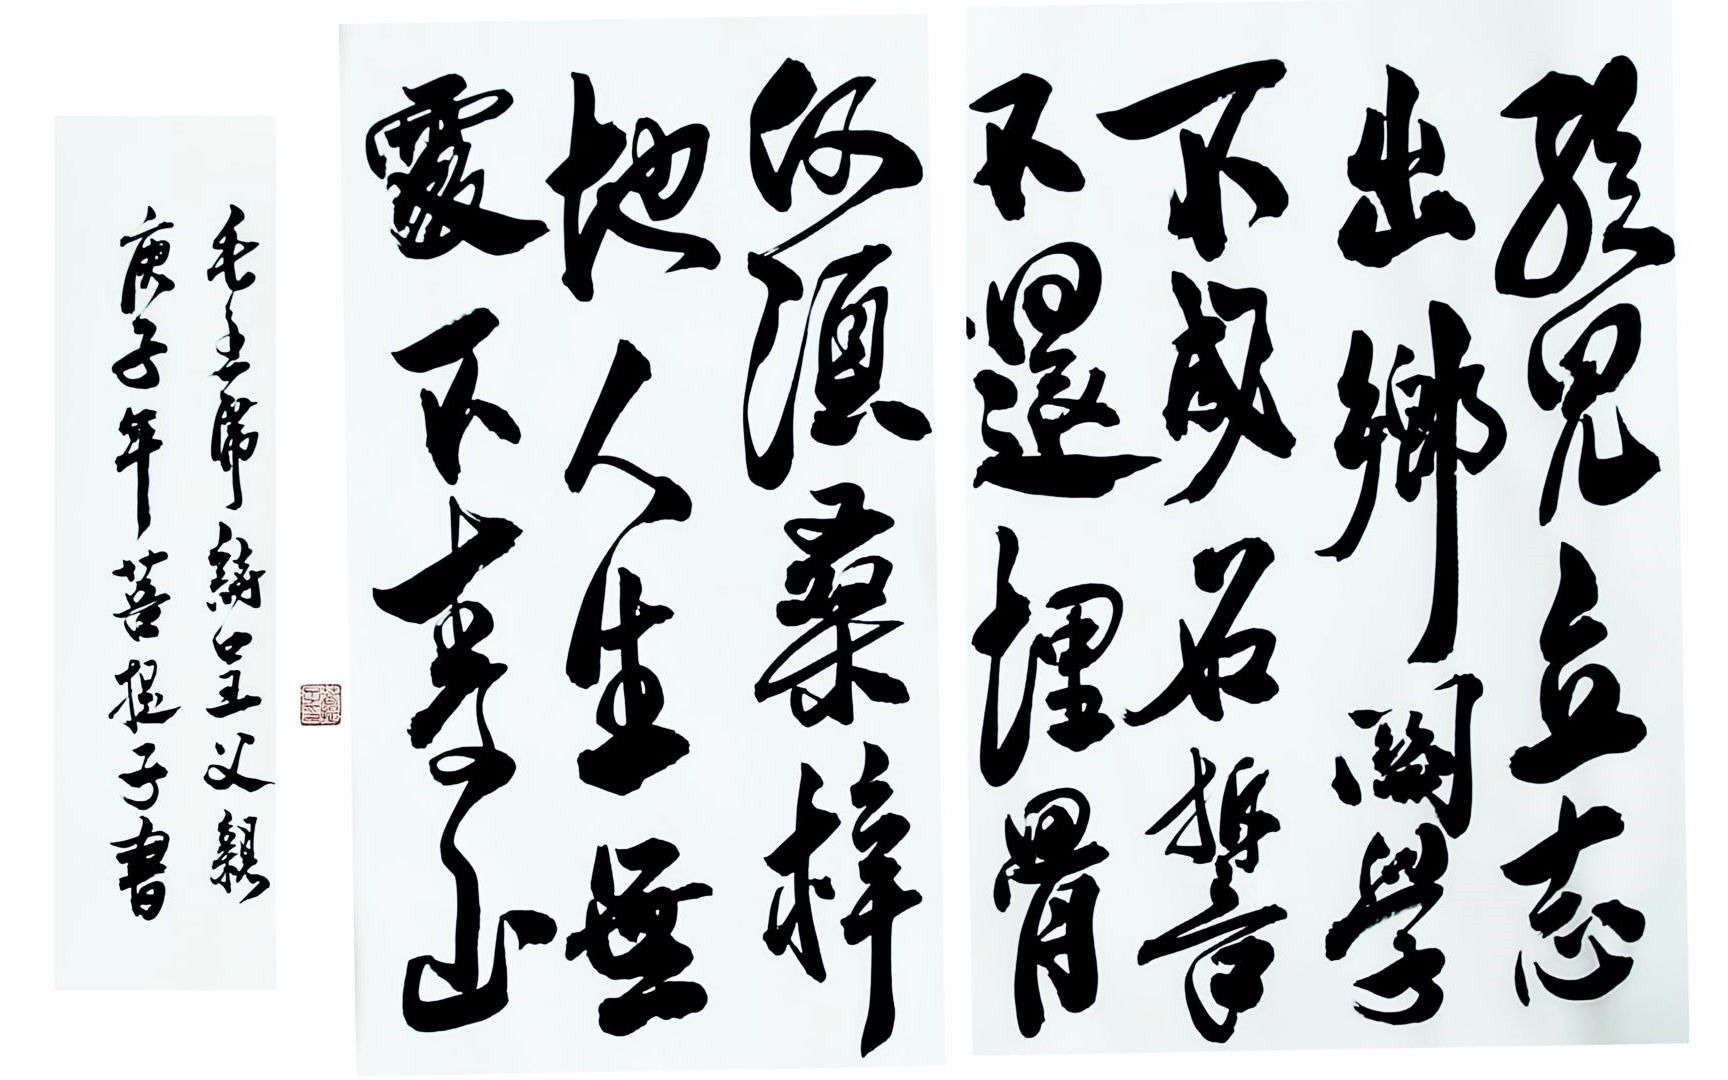 孩兒立志
出鄉關學
不成名誓
不還埋骨
何須桑梓
地人生無
處不青山
毛主席詩呈父親
庚子年菩提子書